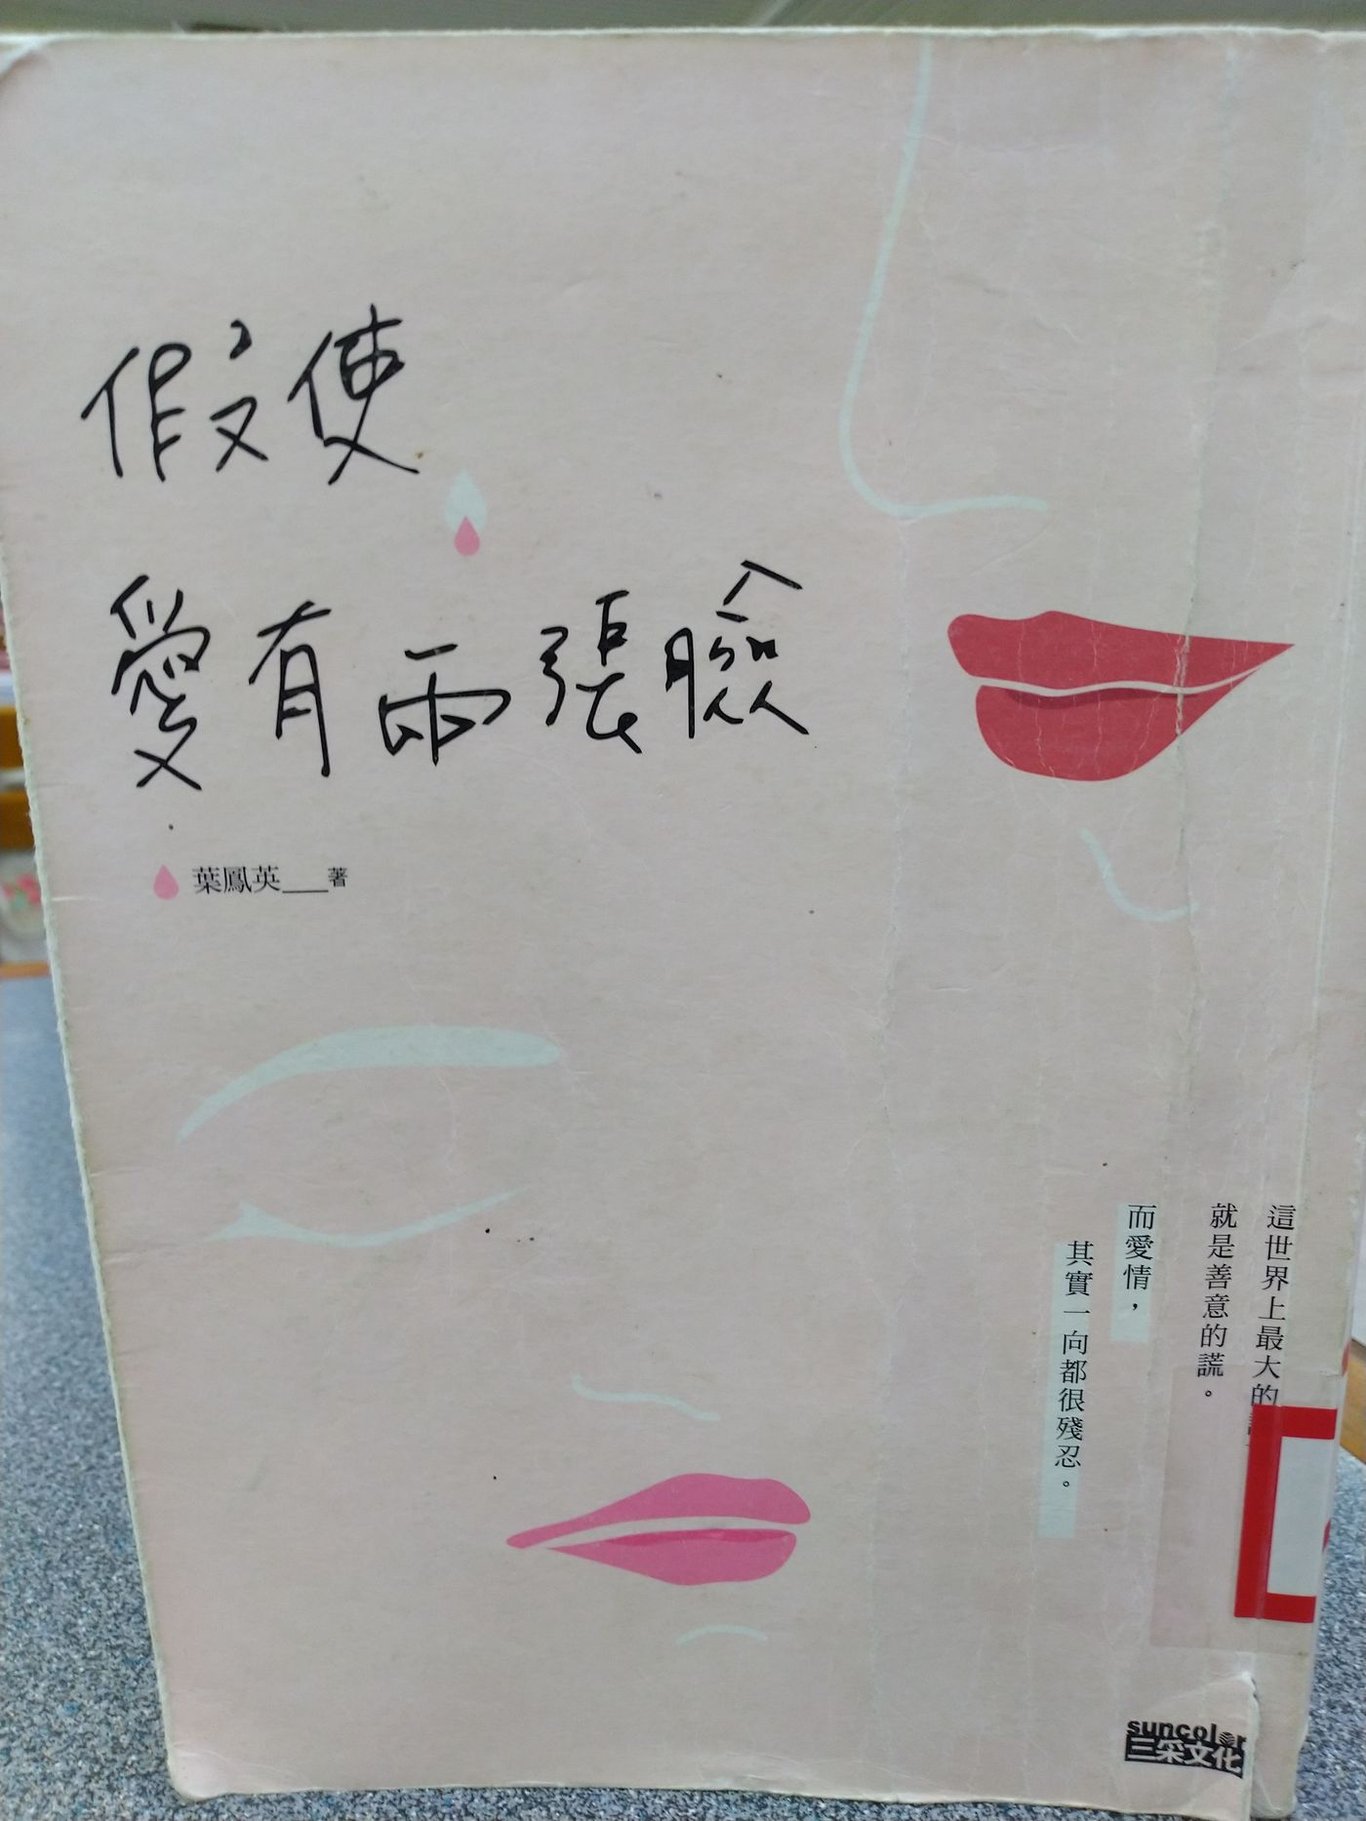 假使
愛有兩張臉
葉鳳英___著
這世界上最大的
就是善意的謊。
而愛情，
其實一向都很殘忍。
suncolor
三采文化